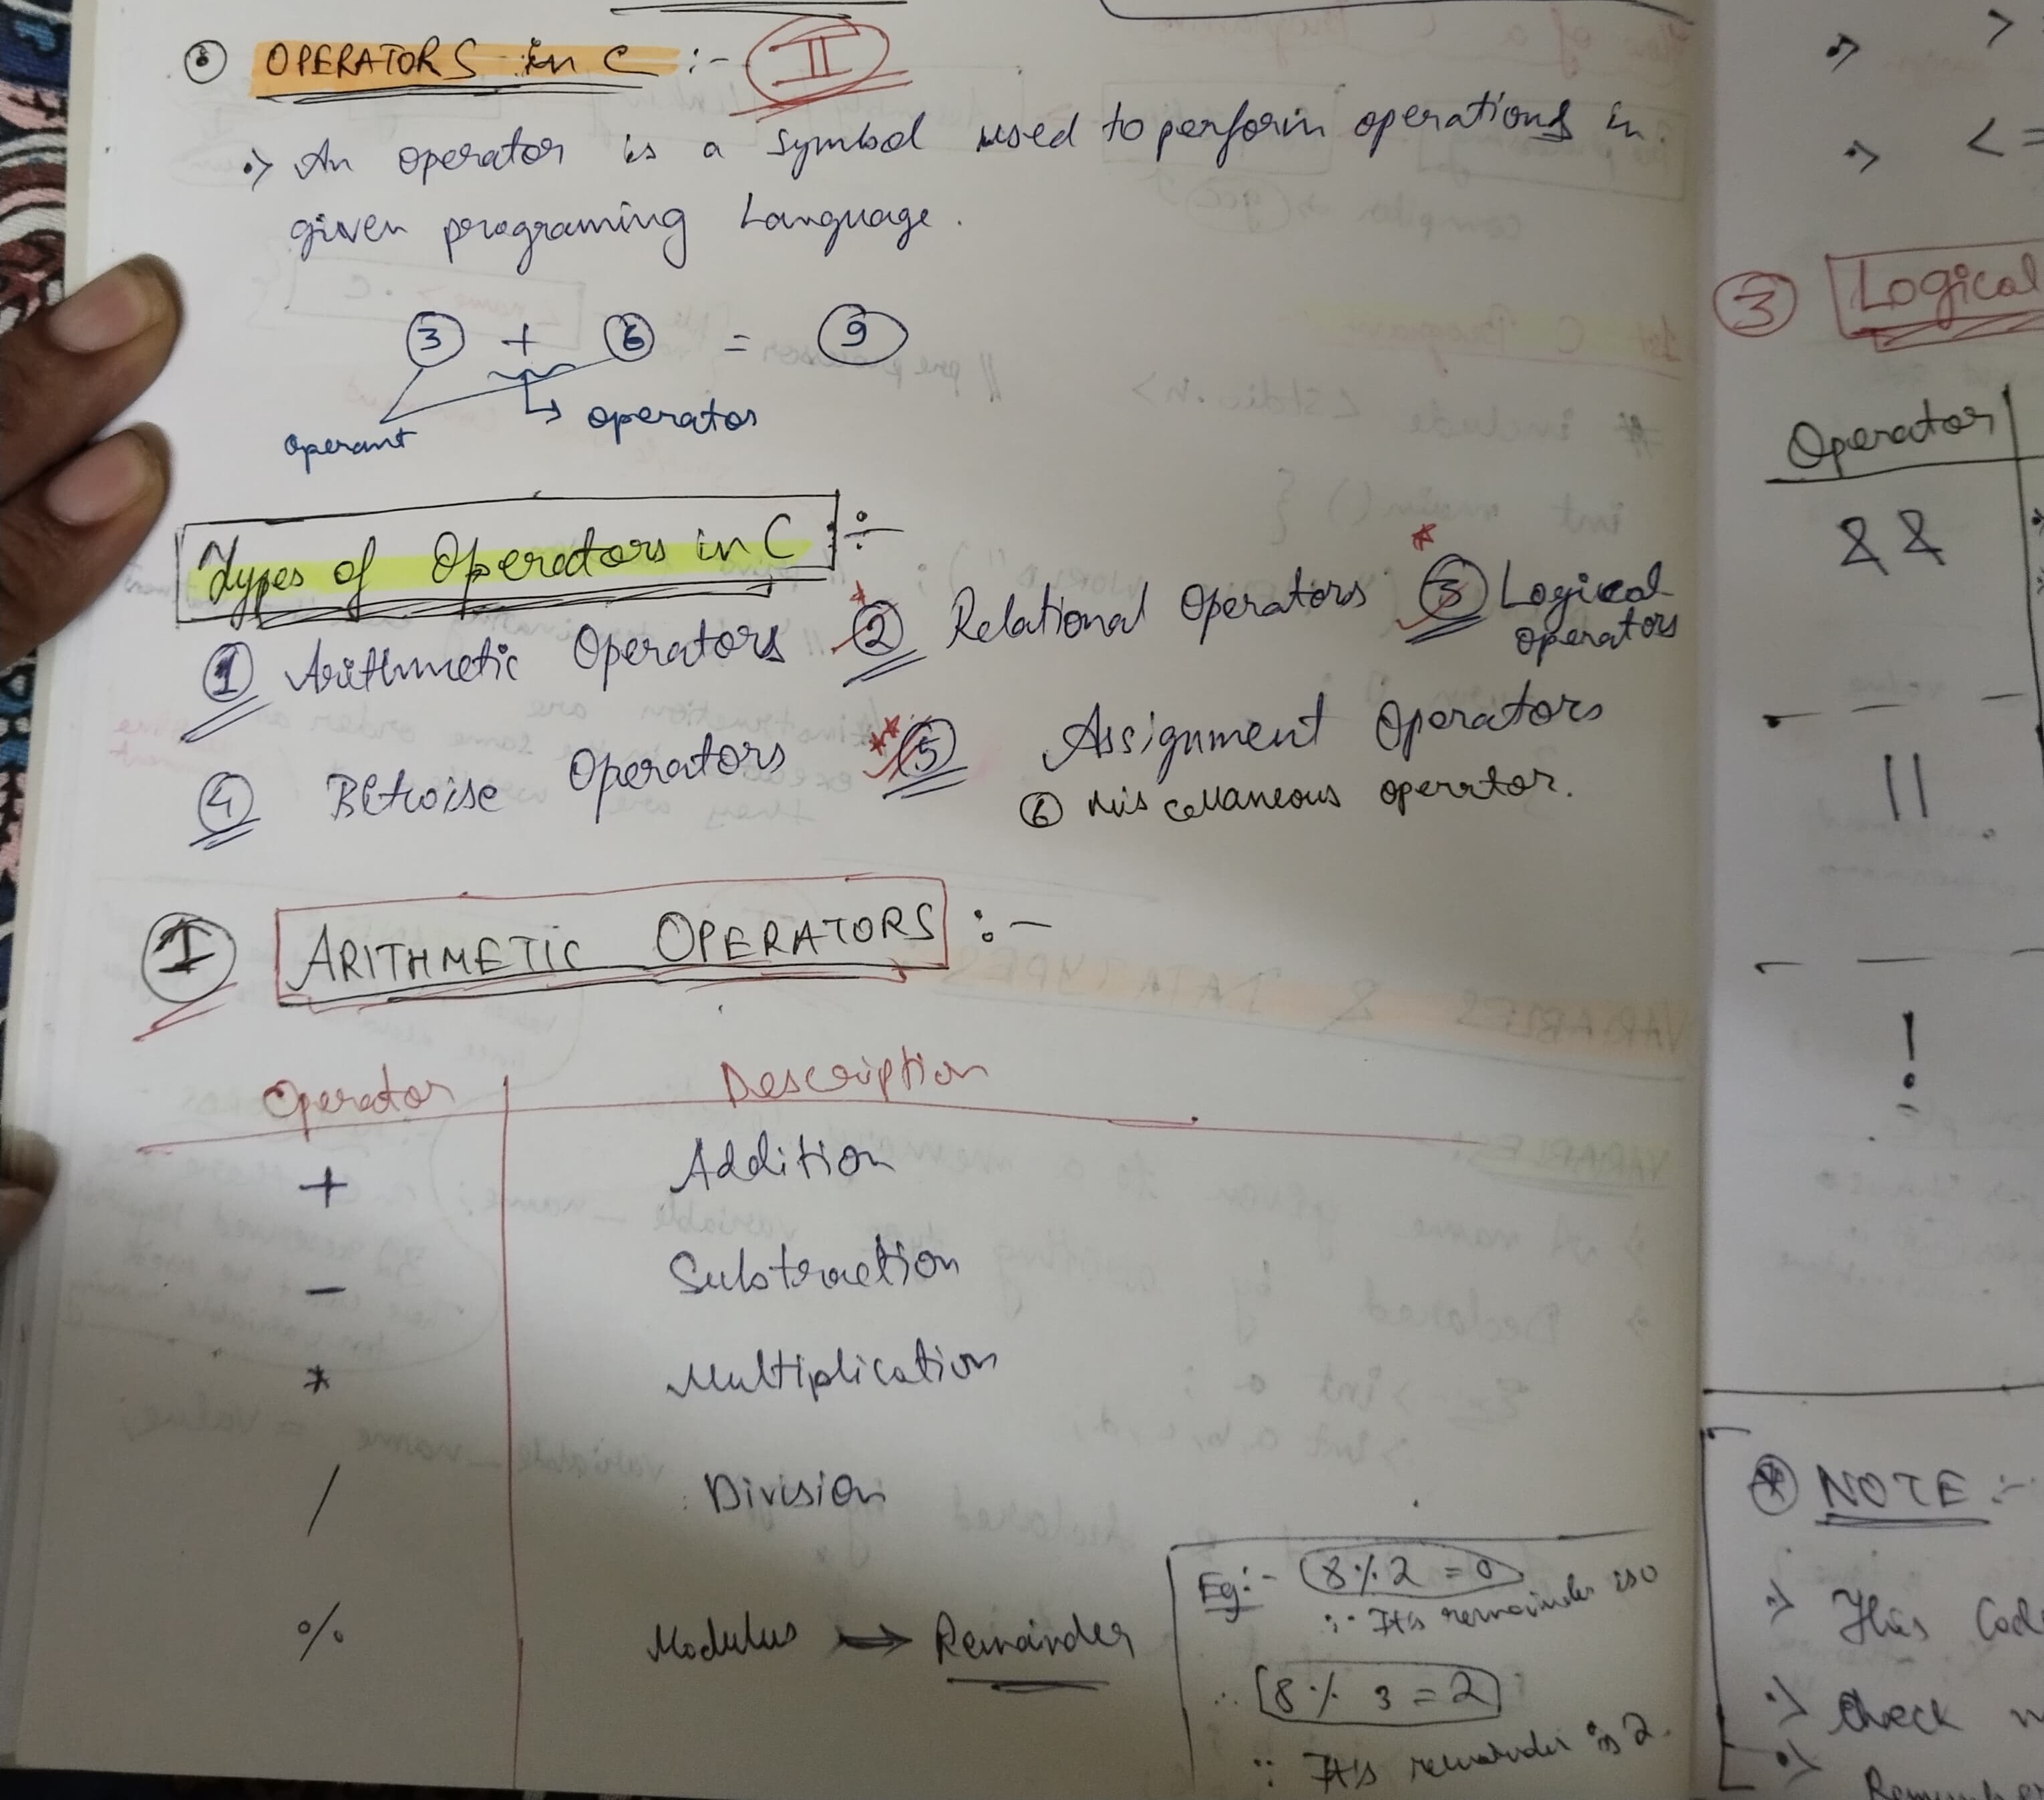 OPERATORS in C :- II
⇒ An operator is a symbol used to perform operations in
given programing Language.
3 + 6 = 9
operant
operator
Types of Operators in C ÷
1 Arithmetic Operators 2 Relational Operators 3 Logical
operators
4 Bitwise Operators 5 Assignment Operators
6 Miscellaneous operator.
I ARITHMETIC OPERATORS :-
Operator Description
+ Addition
- Substraction
* Multiplication
/ Division
% Modulus → Remainder
Eg:- 8 % 2 = 0
∵ It's remainder is 0
∴ 8 % 3 = 2
∵ It's remainder is 2.
>
<=
3 Logical
Operator
&&
||
!
NOTE :-
This
Check